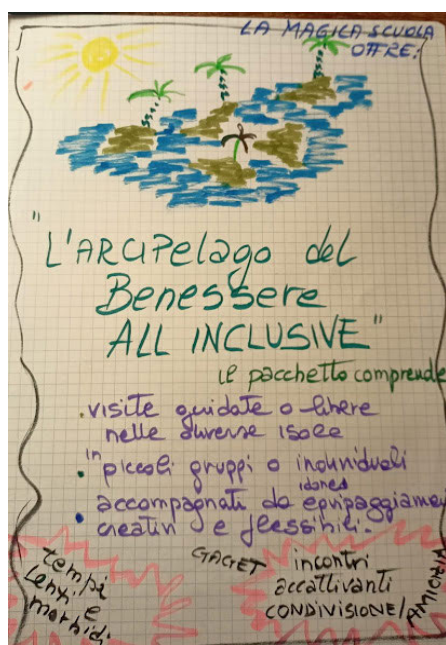 LA MAGICA SCUOLA
OFFRE:
"L'ARCIPELAGO del
Benessere
ALL INCLUSIVE"
il pacchetto comprende
. visite guidate o libere
nelle diverse isole
. in piccoli gruppi o individuali
. accompagnati da idonei equipaggiamenti
. creativi e flessibili.
tempi
lenti e
morbidi
GAGET
incontri
accattivanti
CONDIVISIONE/